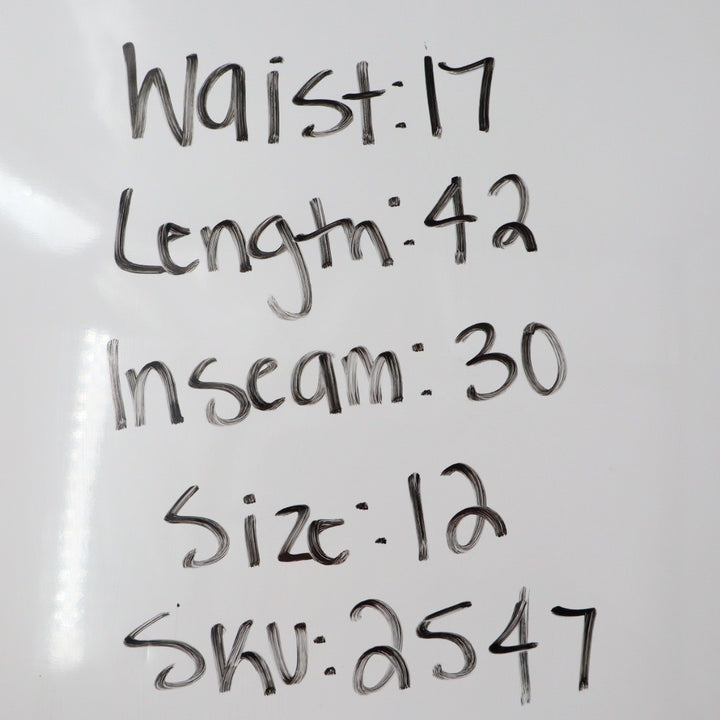 Waist: 17
Length: 42
Inseam: 30
Size: 12
SKU: 2547